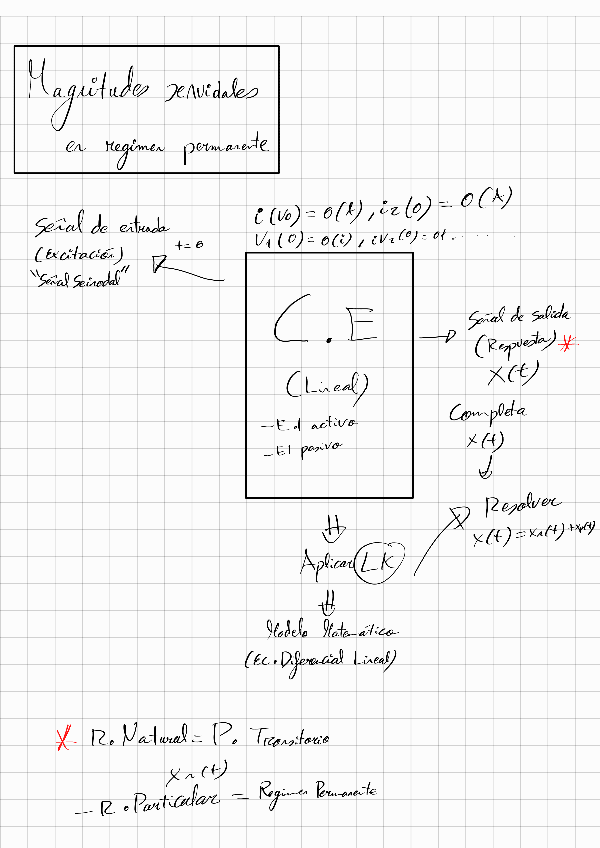 Magnitudes senoidales
en regimen permanente
i(v0) = 0(A), i2(0) = 0(A)
V1(0) = 0(i), iV2(0) = 01........
Señal de entrada
(Excitación)
"Señal Seinodal"
t=0
C.E
(Lineal)
- E.l activo
- El pasivo
Señal de salida
(Respuesta) *
x(t)
Completa
x(t)
Resolver
x(t) = xn(t) + xp(t)
Aplicar LK
Modelo Matemático
(Ec. Diferencial Lineal)
* R. Natural = P. Transitorio
xn(t)
- R. Particular = Regimen Permanente